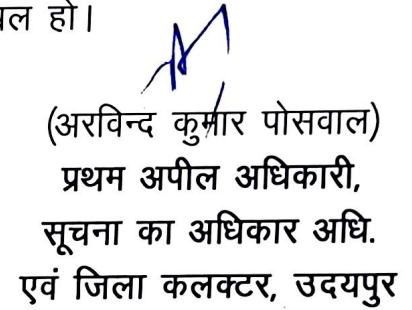 हो।
(अरविन्द कुमार पोसवाल)
प्रथम अपील अधिकारी,
सूचना का अधिकार अधि.
एवं जिला कलक्टर, उदयपुर